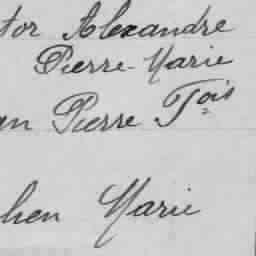 tor Alexandre
Pierre-Marie
an Pierre Fois
hen Marie